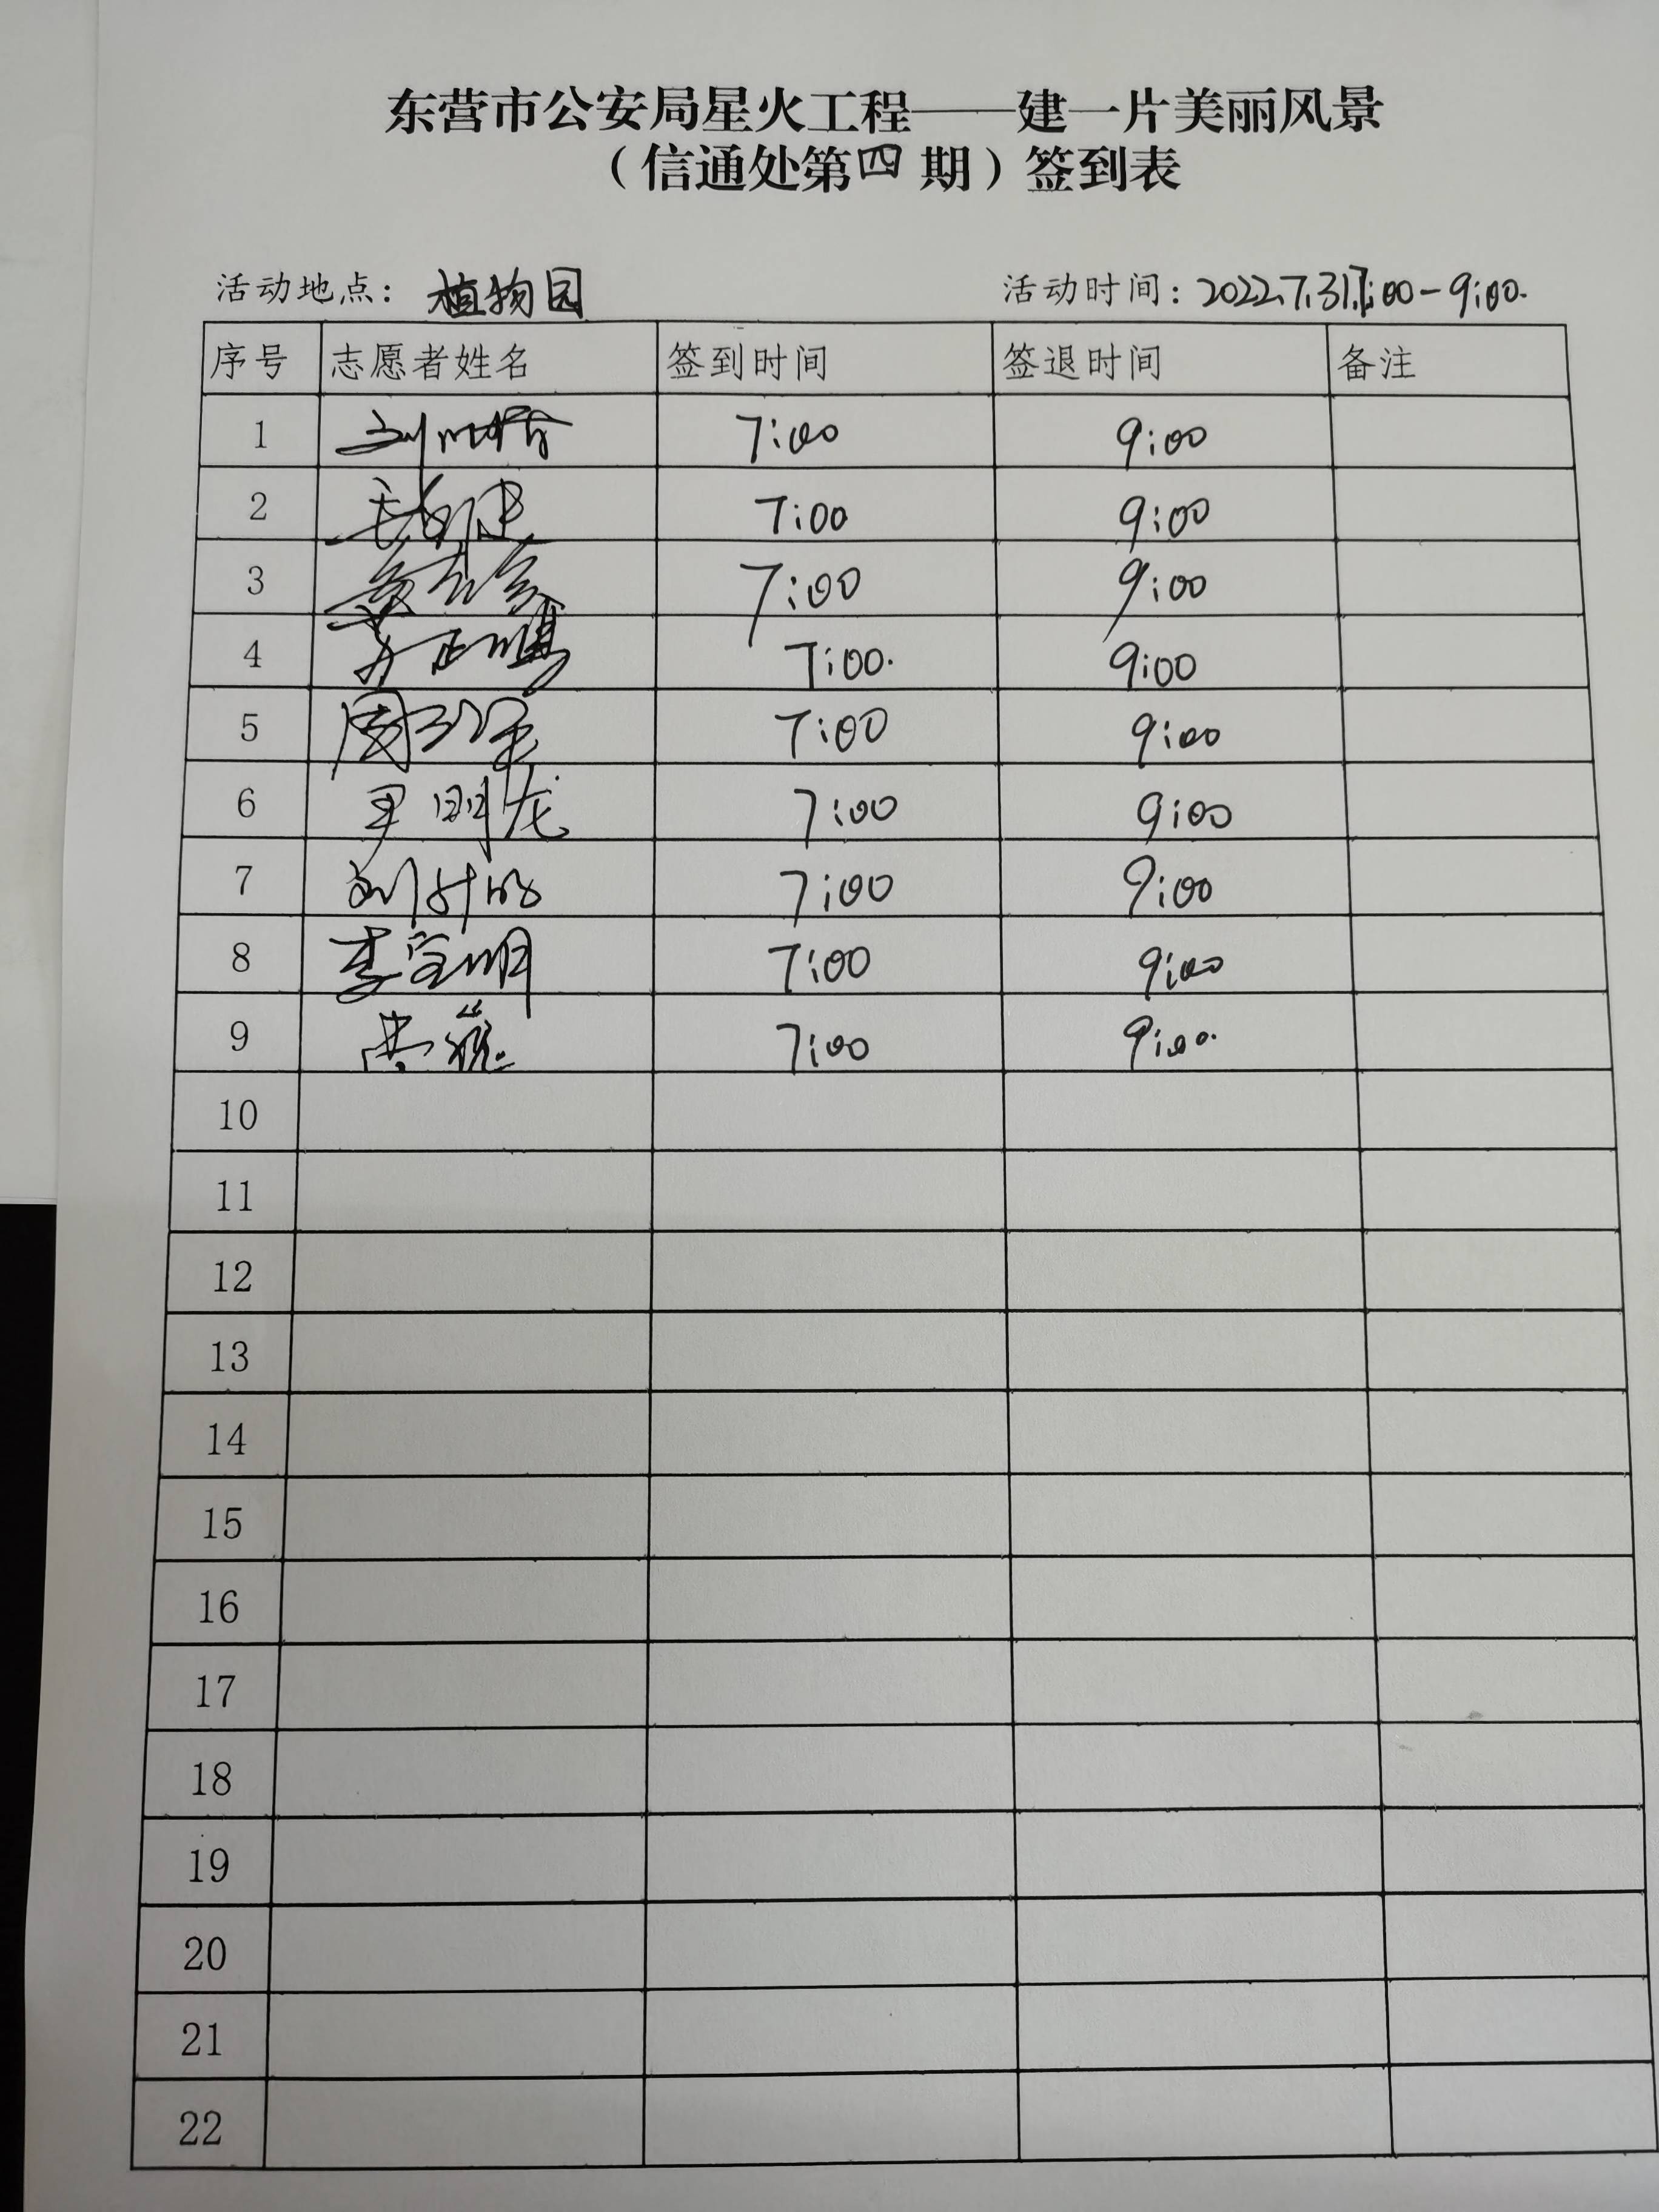 东营市公安局星火工程——建一片美丽风景
（信通处第四期）签到表
活动地点：植物园 活动时间：2022.7.31.7:00-9:00.
序号 志愿者姓名 签到时间 签退时间 备注
1 7:00 9:00
2 7:00 9:00
3 7:00 9:00
4 7:00. 9:00
5 7:00 9:00
6 尹明龙 7:00 9:00
7 7:00 9:00
8 李宝明 7:00 9:00
9 7:00 9:00.
10
11
12
13
14
15
16
17
18
19
20
21
22